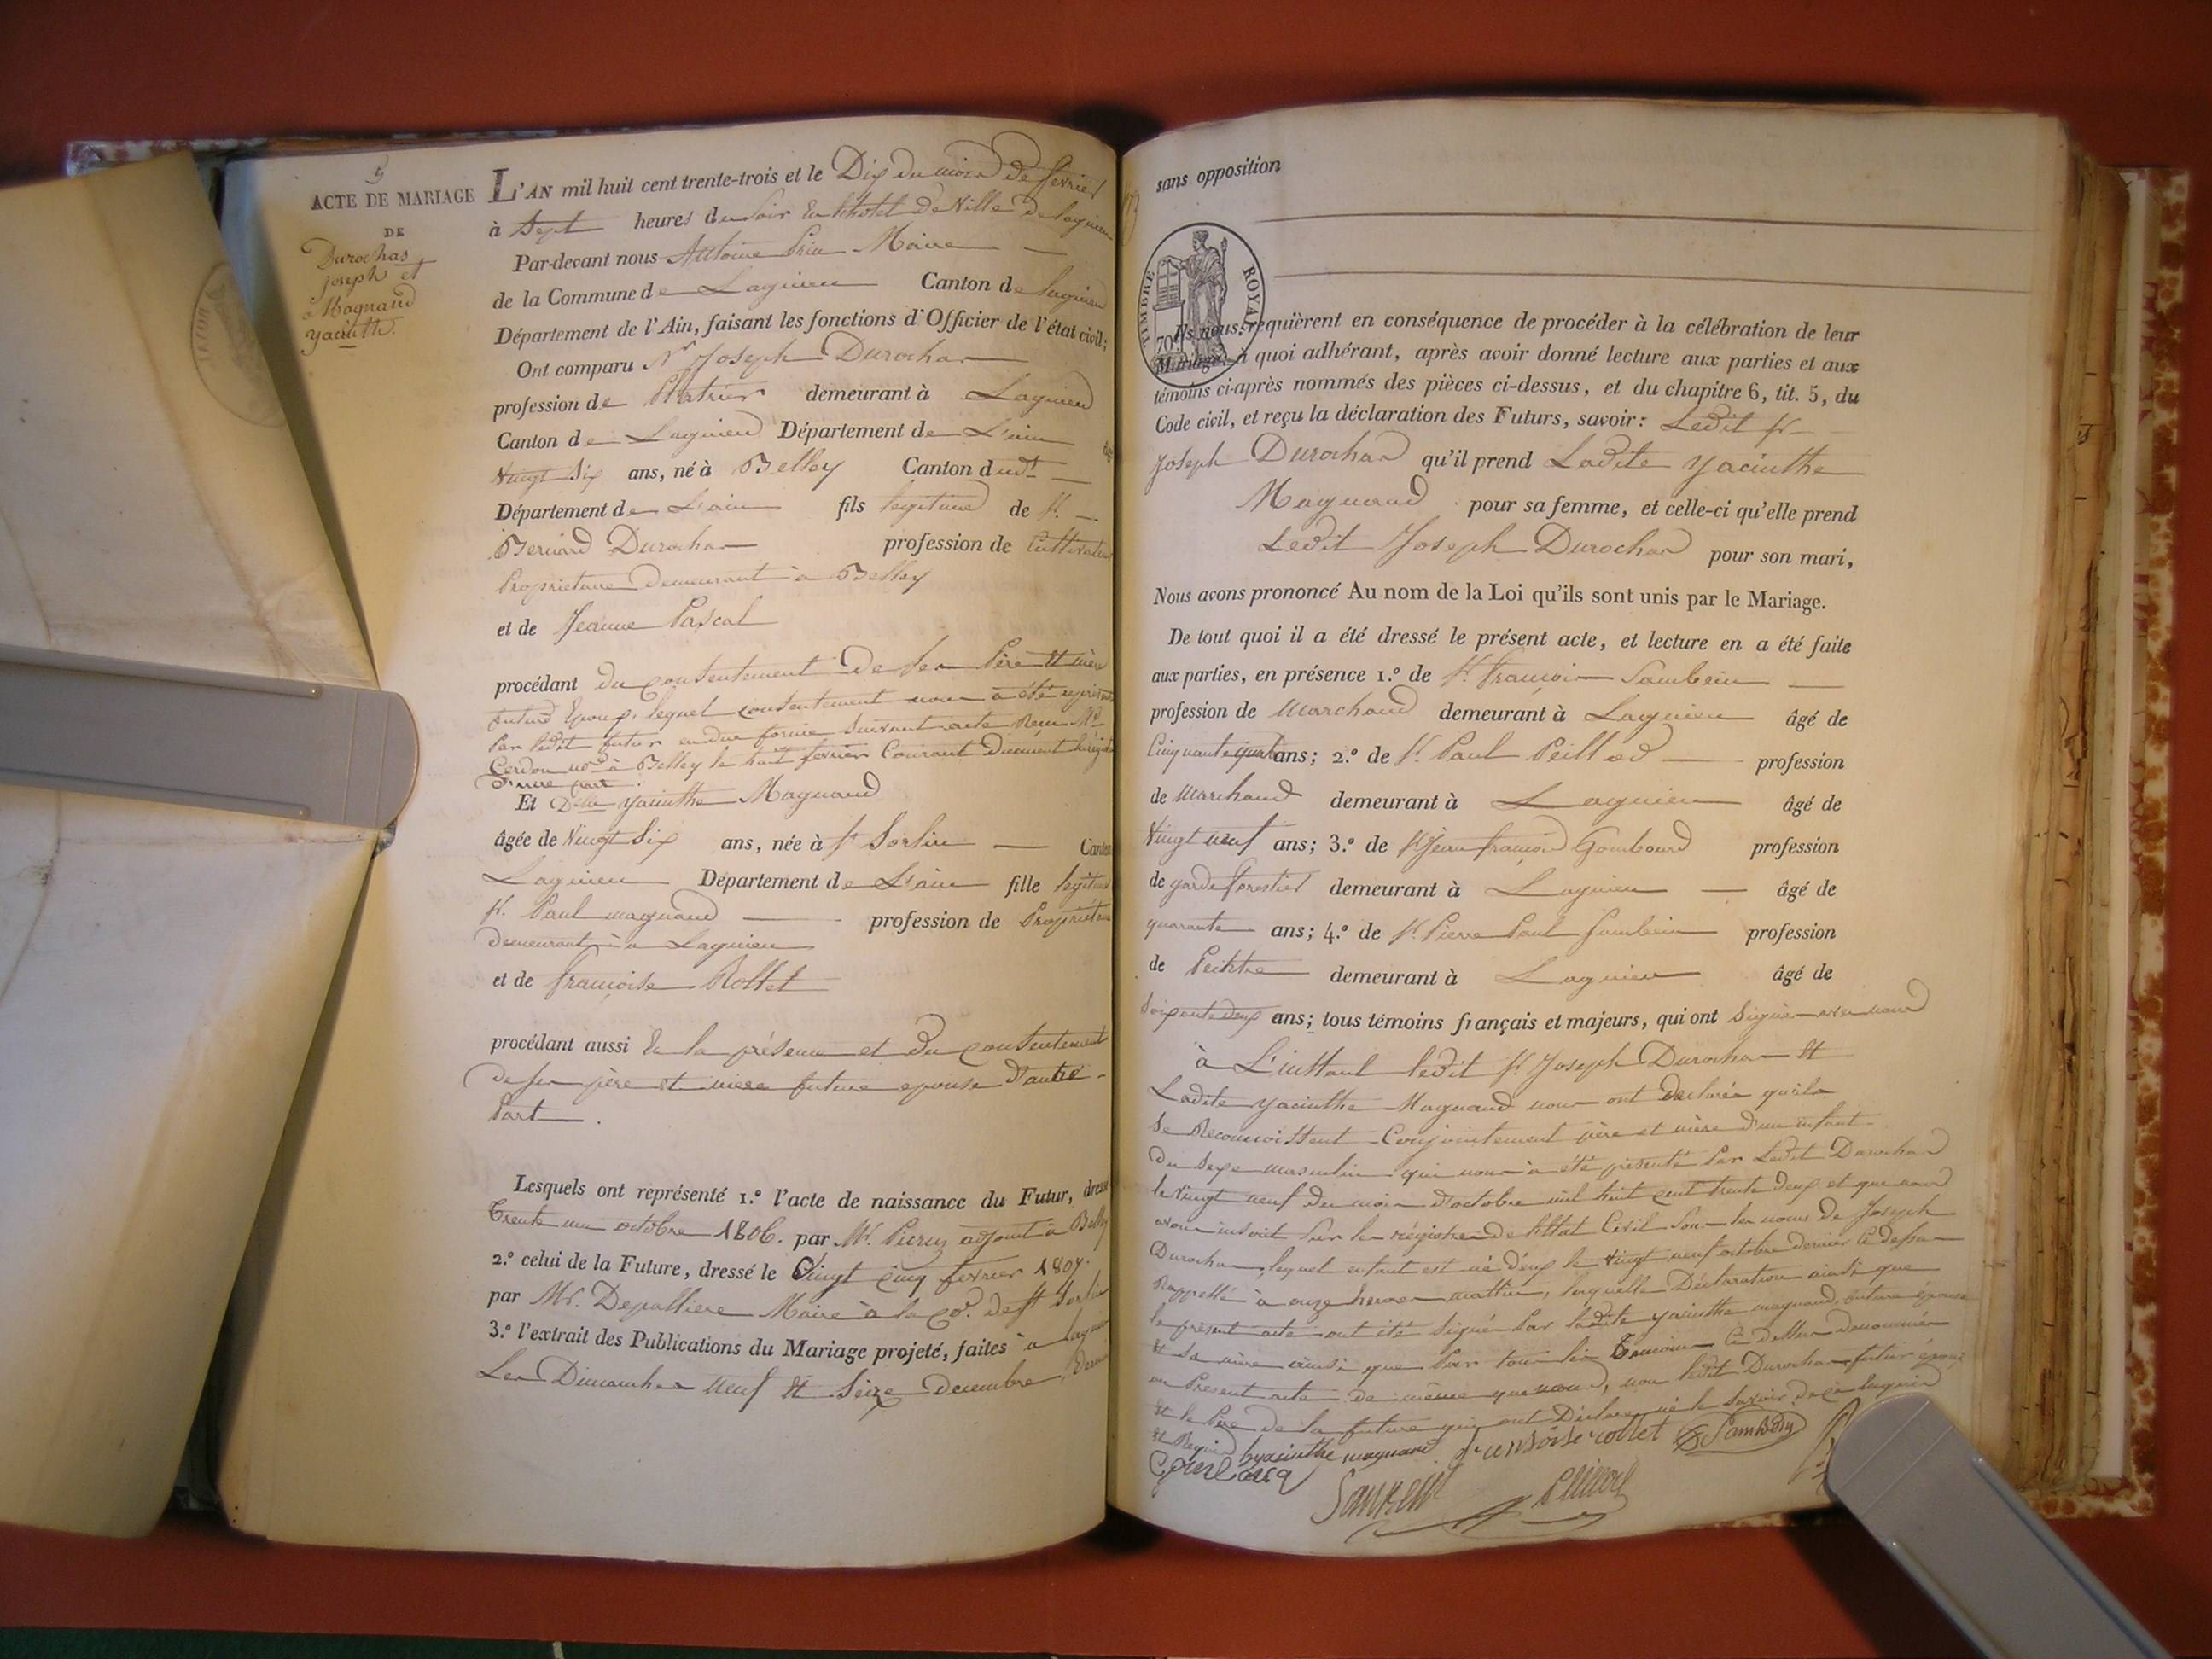 5
ACTE DE MARIAGE
DE
Durochas
joseph et
Magnand
yacinthe.
L'AN mil huit cent trente-trois et le Dix du mois de fevrier
à Sept heures du soir En l'hotel De Ville de lagnieu
Par-devant nous Antoine Maire
de la Commune de Lagnieu Canton de lagnieu
Département de l'Ain, faisant les fonctions d'Officier de l'état civil;
Ont comparu Sr Joseph Durochas
profession de Platrier demeurant à Lagnieu
Canton de Lagnieu Département de L'ain
Vingt Six ans, né à Belley Canton dudt
Département de L'ain fils legitime de Sr
Bernard Durochas profession de Cultivateur
Proprietaire Demeurant à Belley
et de Jeanne Pascal
procédant du consentement de ses Père et mère
futurs Epoux, lequel consentement nous a été représenté
Par ledit futur en due forme Suivant acte Recu Me
Cerdon nore à Belley le huit fevrier Courant Duement Enregistré
D'une part.
Et Delle yacinthe Magnand
âgée de Vingt Six ans, née à St Sorlin Canton
Lagnieu Département de L'ain fille legitime
Sr. Paul magnand profession de Propriétaire
Demeurant à Lagnieu
et de françoise Rollet
procédant aussi En la présence et du consentement
de ses père et mère future epouse D'autre
Part.
Lesquels ont représenté 1.º l'acte de naissance du Futur, dressé
Trente un octobre 1806. par Mr. adjoint à Belley
2.º celui de la Future, dressé le Vingt Cinq fevrier 1807.
par Mr. Depalliere Maire à la Co. de St Sorlin
3.º l'extrait des Publications du Mariage projeté, faites à lagnieu
Les Dimanches Neuf Et Seize Decembre Dernier
sans opposition
TIMBRE ROYAL
70
Ils nous requièrent en conséquence de procéder à la célébration de leur
Mariage. A quoi adhérant, après avoir donné lecture aux parties et aux
témoins ci-après nommés des pièces ci-dessus, et du chapitre 6, tit. 5, du
Code civil, et reçu la déclaration des Futurs, savoir: Ledit Sr
Joseph Durochas qu'il prend Ladite yacinthe
Magnand pour sa femme, et celle-ci qu'elle prend
Ledit Joseph Durochas pour son mari,
Nous avons prononcé Au nom de la Loi qu'ils sont unis par le Mariage.
De tout quoi il a été dressé le présent acte, et lecture en a été faite
aux parties, en présence 1.º de Sr. françois Sambein
profession de Marchand demeurant à Lagnieu âgé de
Cinquante quatre ans; 2.º de Sr. Paul Peillod profession
de Marchand demeurant à Lagnieu âgé de
Vingt neuf ans; 3.º de Sr Jean françois Gombourd profession
de garde forestier demeurant à Lagnieu âgé de
quarante ans; 4.º de Sr. Pierre Paul Sambein profession
de Peintre demeurant à Lagnieu âgé de
Soixante deux ans; tous témoins français et majeurs, qui ont Signés avec nous
à L'instant ledit Sr Joseph Durochas Et
Ladite yacinthe Magnand nous ont declarés qu'ils
se Reconnoissent Conjointement père et mère d'un enfant
du sexe masculin qui nous à été présenté Par Ledit Durochas
le Vingt neuf du mois D'octobre mil huit cent trente Deux et que nous
avons inscrit Sur les régistres de l'Etat Civil Sous les noms de Joseph
Durochas, lequel enfant est né D'eux le Vingt neuf octobre dernier Ci dessus
Rappellé à onze heures mattin, laquelle Déclaration ainsi que
le présent acte ont été Signés Par ladite yacinthe magnand, future épouse
Et Sa mère ainsi que Par tous les Temoins Ci Dessus Denommés
au Present acte De même que nous, non ledit Durochas futur époux
Et le Père de la future qui ont Déclaré né le Savoir De ce Enquis
Et Requis hyacinthe magnand fransoise rollet Sambein
Gombourg
Sambein Peillod